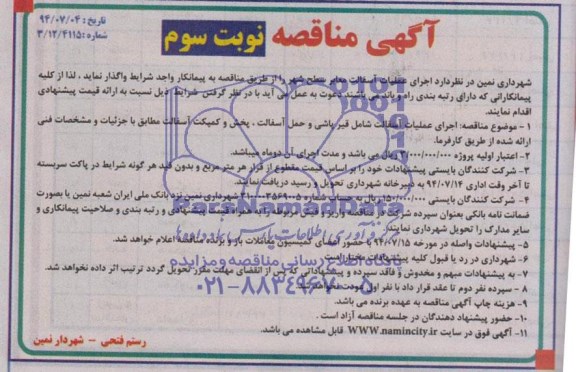 تاریخ: ۹۴/۰۷/۰۴
شماره: ۳/۱۲/۴۱۱۵
آگهی مناقصه نوبت سوم
شهرداری نمین در نظردارد اجرای عملیات آسفالت معابر سطح شهر را از طریق مناقصه به پیمانکار واجد شرایط واگذار نماید ، لذا از کلیه
پیمانکارانی که دارای رتبه بندی راه و باند می باشند دعوت به عمل می آید با در نظر گرفتن شرایط ذیل نسبت به ارائه قیمت پیشنهادی
اقدام نمایند.
۱ - موضوع مناقصه: اجرای عملیات آسفالت شامل قیر پاشی و حمل آسفالت ، پخش و کمپکت آسفالت مطابق با جزئیات و مشخصات فنی
ارائه شده از طریق کارفرما.
۲ - اعتبار اولیه پروژه ۳/۰۰۰/۰۰۰/۰۰۰ ریال می باشد و مدت اجرای آن دوماه میباشد.
۳ - شرکت کنندگان بایستی پیشنهادات خود را بر اساس قیمت مقطوع از قرار هر متر مربع و بدون قید هر گونه شرایط در پاکت سربسته
تا آخر وقت اداری ۹۴/۰۷/۱۴ به دبیرخانه شهرداری تحویل و رسید دریافت نمایند.
۴ - شرکت کنندگان بایستی ۱۵۰/۰۰۰/۰۰۰ ریال به حساب سپرده شماره شهرداری نمین نزد بانک ملی ایران شعبه نمین یا بصورت
ضمانت نامه بانکی بعنوان سپرده شرکت در مناقصه واریز و فیش مربوطه را به همراه قیمت پیشنهادی و رتبه بندی و صلاحیت پیمانکاری و
سایر مدارک را تحویل شهرداری نمایند.
۵ - پیشنهادات واصله در مورخه ۹۴/۰۷/۱۵ با حضور اعضای کمیسیون معاملات باز و برنده مناقصه اعلام خواهد شد.
۶ - شهرداری در رد یا قبول کلیه پیشنهادات مختار است.
۷ - به پیشنهادات مبهم و مخدوش و فاقد سپرده و پیشنهاداتی که پس از انقضای مهلت مقرر تحویل گردد ترتیب اثر داده نخواهد شد.
۸ - سپرده نفر دوم تا عقد قرار داد با نفر اول عودت نخواهد شد.
۹ - هزینه چاپ آگهی مناقصه به عهده برنده می باشد.
۱۰ - حضور پیشنهاد دهندگان در جلسه مناقصه آزاد است .
۱۱ - آگهی فوق در سایت WWW.namincity.ir قابل مشاهده می باشد.
رستم فتحی - شهردار نمین
ParsNamadData
فن آوری اطلاعات پارس نماد داده ها
پایگاه اطلاع رسانی مناقصه و مزایده
۰۲۱-۸۸۳۴۹۶۷۰-۵